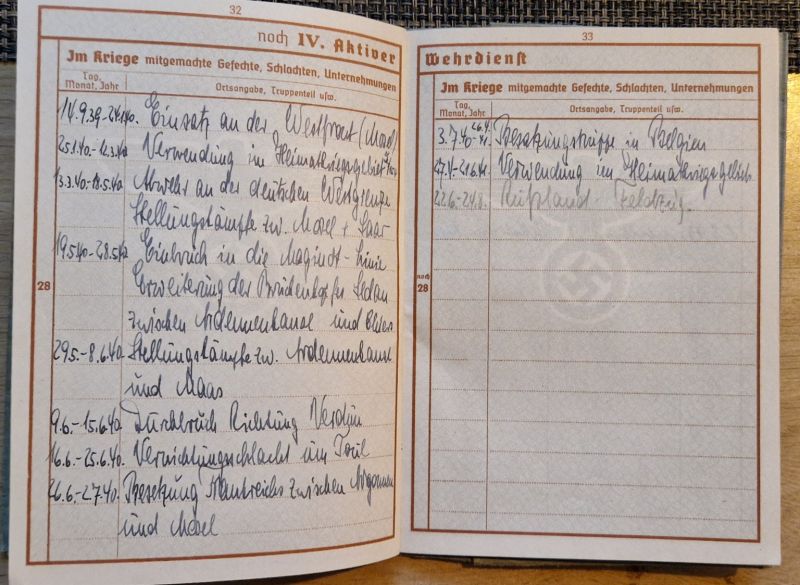 32
noch IV. Aktiver
Im Kriege mitgemachte Gefechte, Schlachten, Unternehmungen
Tag, Monat, Jahr
Ortsangabe, Truppenteil usw.
14.9.39-24.1.40. Einsatz an der Westfront (Mosel)
25.1.40-12.3.40 Verwendung im Heimatkriegsgebiet
13.3.40-18.5.40 Abwehr an der deutschen Westgrenze
Stellungskämpfe zw. Mosel + Saar
19.5.40-28.5.40 Einbruch in die Maginot-Linie
Erweiterung der Brückenkopfes Sedan
zwischen Ardennenkanal und
29.5.-8.6.40. Stellungskämpfe zw. Ardennenkanal
und Maas
9.6.-15.6.40. Durchbruch Richtung Verdun
16.6.-25.6.40. Vernichtungsschlacht um Toul
26.6.-2.7.40. Besetzung Frankreichs zwischen Argonnen
und Mosel
28
33
Wehrdienst
Im Kriege mitgemachte Gefechte, Schlachten, Unternehmungen
Tag, Monat, Jahr
Ortsangabe, Truppenteil usw.
3.7.40-26.4.41. Besetzungstruppe in Belgien
27.4-21.6.41 Verwendung im Heimatkriegsgebiet
22.6-24.8. Rußland Feldzug.
noch 28